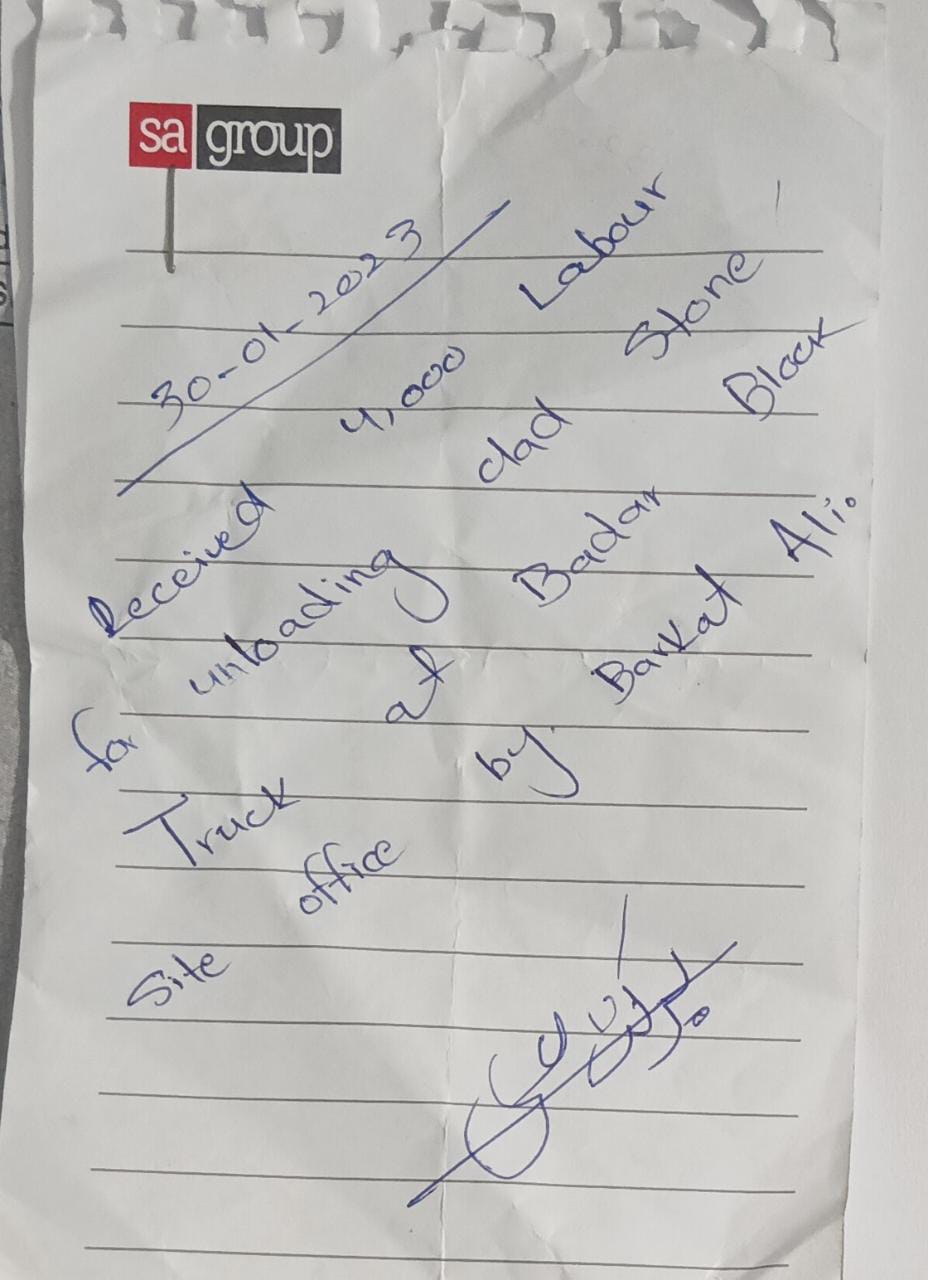 sa group
30-01-2023
Received 4,000 Labour
for unloading clad Stone
Truck at Badar Block
Site office by Barkat Ali.